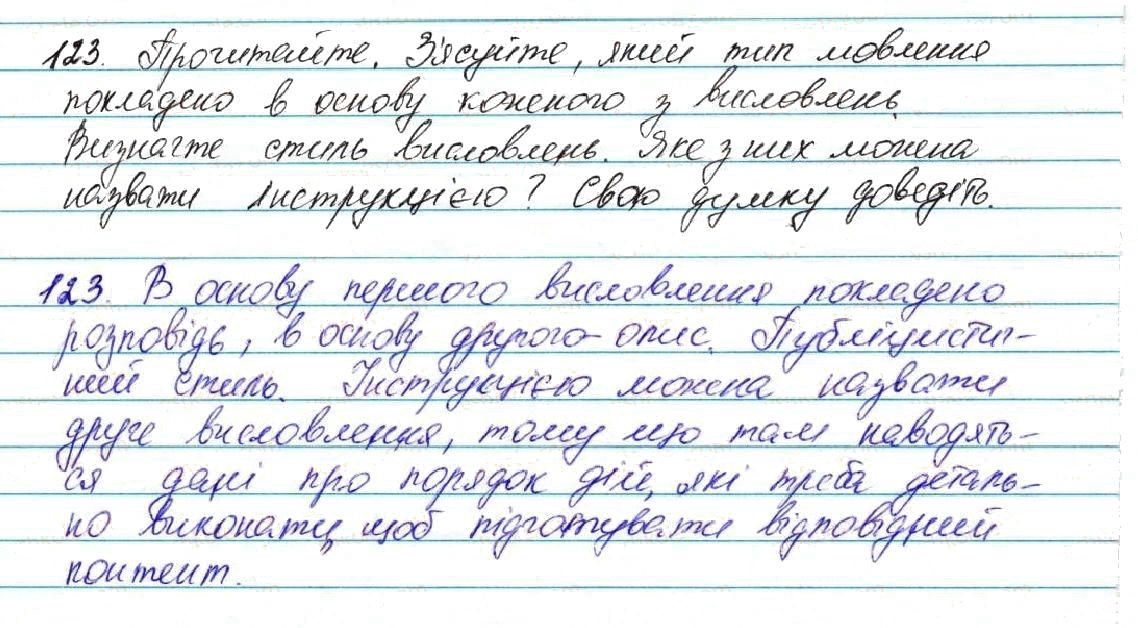 123. Прочитайте. З'ясуйте, який тип мовлення
покладено в основу кожного з висловлень.
Визначте стиль висловлень. Яке з них можна
назвати інструкцією? Свою думку доведіть.
123. В основу першого висловлення покладено
розповідь, в основу другого - опис. Публіцистич-
ний стиль. Інструкцією можна назвати
друге висловлення, тому що там наводять-
ся дані про порядок дій, які треба деталь-
но виконати, щоб підготувати відповідний
контент.